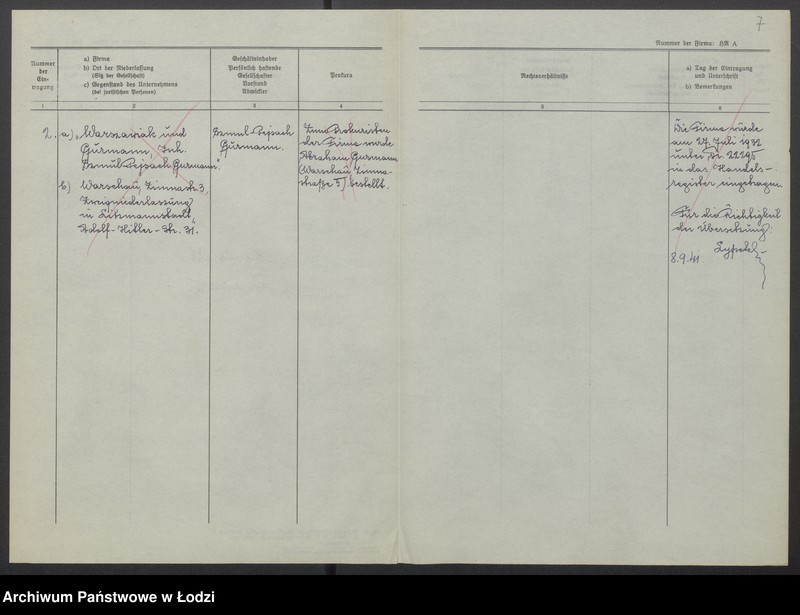 7
Nummer der Firma: HR A
Nummer der Ein-tragung
a) Firma
b) Ort der Niederlassung
(Sitz der Gesellschaft)
c) Gegenstand des Unternehmens
(bei juristischen Personen)
Geschäftsinhaber
Persönlich haftende
Gesellschafter
Vorstand
Abwickler
Prokura
Rechtsverhältnisse
a) Tag der Eintragung
und Unterschrift
b) Bemerkungen
1
2
3
4
5
6
2.
a) „Warszawiak und
Gurmann, Inh.
Szmul-Pejsach Gurmann"
b) Warschau, Zimnastr. 3,
Zweigniederlassung
in Litzmannstadt,
Adolf-Hitler-Str. 31.
Szmul-Pejsach
Gurmann.
Zum Prokuristen
der Firma wurde
Abraham Gurmann
(Warschau, Zimna-
straße 5) bestellt.
Die Firma wurde
am 27. Juli 1932
unter Nr. 22295
in das Handels-
register eingetragen.
Für die Richtigkeit
der Übersetzung:
8.9.41
Archiwum Państwowe w Łodzi